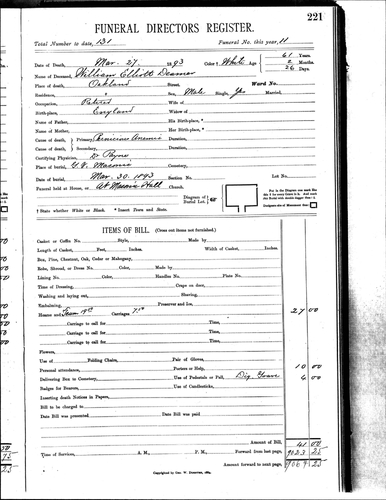 221
FUNERAL DIRECTORS REGISTER.
Total Number to date, 131 Funeral No. this year, 11
Date of Death, Mar. 27. 1893 Color † White Age 61 Years. 2 Months. 26 Days.
Name of Deceased, William Elliott Deamer
Place of death, Oakland Street, Ward No.
Residence, Sex, Male Single, Yes Married,
Occupation, Retired Wife of
Birth-place, England Widow of
Name of Father, His Birth-place, *
Name of Mother, Her Birth-place, *
Cause of death, Primary, Pernicious Anemia Duration,
Cause of death, Secondary, Duration,
Certifying Physician, Dr Payne
Place of burial, Masonic Cemetery,
Date of burial, Mar. 30. 1893 Section No. Lot No.
Funeral held at House, or At Masonic Hall Church,
Diagram of Burial Lot
For in the Diagram use mark like this I for every Grave in it. And mark this Burial with double dagger thus ‡
Designate site of Monument thus
† State whether White or Black. * Insert Town and State.
ITEMS OF BILL. (Cross out items not furnished.)
Casket or Coffin No. Style, Made by
Length of Casket, Feet, Inches. Width of Casket, Inches.
Box, Pine, Chestnut, Oak, Cedar or Mahogany,
Robe, Shroud, or Dress No. Color, Made by
Lining No. Color, Handles No. Plate No.
Time of Dressing, Crape on door,
Washing and laying out, Shaving,
Embalming, Preserve and Ice,
Hearse and Team Carriages 27 00
Carriage to call for Time,
Carriage to call for Time,
Carriage to call for Time,
Carriage to call for Time,
Flowers,
Use of Folding Chairs, Pair of Gloves,
Personal attendance, Porters or Help, 10 00
Delivering Box to Cemetery, Use of Pedestals or Pall, Dig. Grave 4 00
Badges for Bearers, Use of Candlesticks,
Inserting death Notices in Papers,
Bill to be charged to
Date Bill was presented Date Bill was paid
Amount of Bill, 41 00
Time of Services, A. M., P. M. Forward from last page,
Amount forward to next page,
Copyrighted by Geo. W.